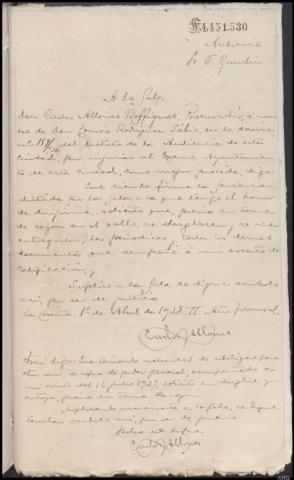 F.4451530
Audiencia
Sr.
A la Sala
Don Carlos Allones Roffignal, Procurador, a nom-
bre de Don Tomás Rodríguez Sabio, en la causa
nº 187/36 del distrito de la Audiencia de esta
ciudad, por injurias al Excmo Ayuntamien-
to de esta ciudad, como mejor proceda, digo:
Que siendo firme la sentencia
dictada por la Sala a la que tengo el honor
de dirigirme, solicito que, previa su toma
de razón en el rollo, se desglosen y se me
entreguen los periódicos y todos los demás
documentos que acompañé a mi escrito de
calificación, y
Suplico a la Sala se digne acordarlo
así, por ser de justicia
La Coruña, 1º de Abril de 1938. II Año Triunfal
Carlos Allones
digo: Que teniendo necesidad de utilizar para
otros usos la copia de poder general, acompañada a
mi escrito del 12 Julio 1937, solicito su desglose y
entrega, previa su toma de razón
Suplicando nuevamente a la Sala, se digne
acordarlo así, por ser de justicia
Fecha ut supra
Carlos Allones